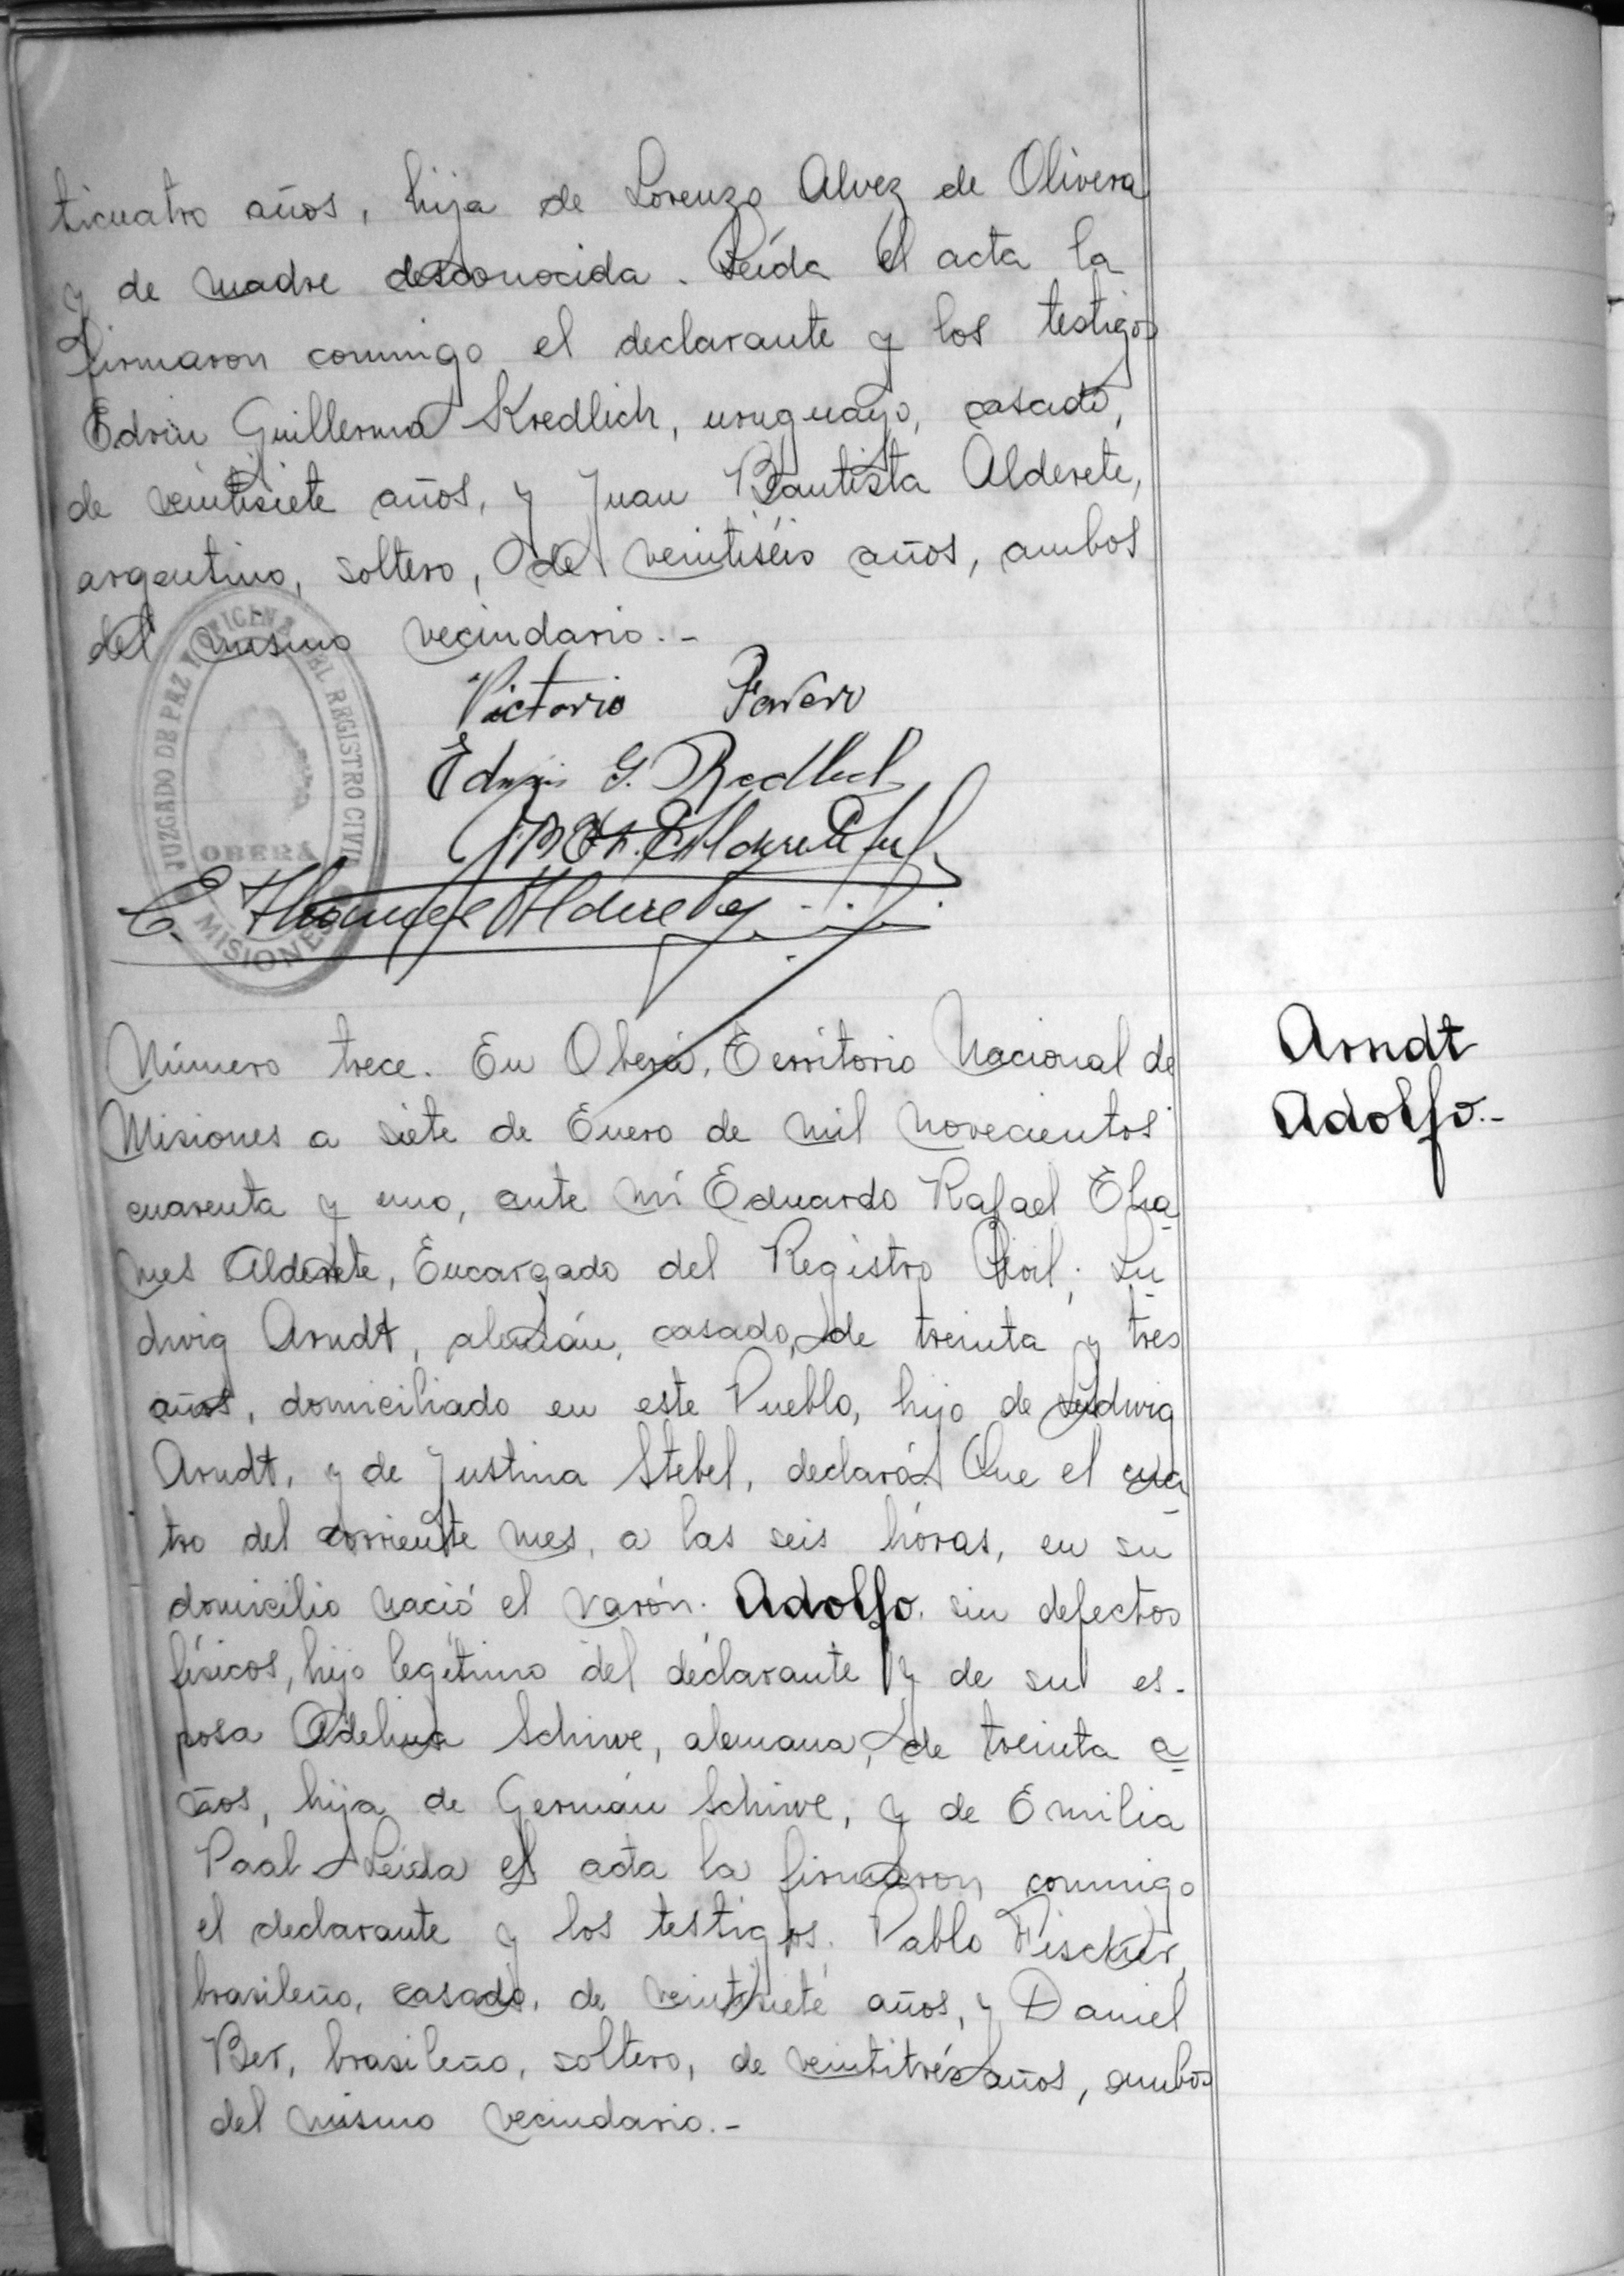 ticuatro años, hija de Lorenzo Alvez de Olivera
y de madre desconocida. Leída el acta la
firmaron conmigo el declarante y los testigos
Edvin Guillermo Kredlich, uruguayo, casado,
de veintisiete años, y Juan Bautista Alderete,
argentino, soltero, de veintiséis años, ambos
del mismo vecindario.-
JUZGADO DE PAZ Y OFICINA DEL REGISTRO CIVIL
OBERÁ
MISIONES
Victorio
Edwin G. Redlich
Alderete
E. Alderete
Número trece. En Oberá, Territorio Nacional de
Misiones a siete de Enero de mil novecientos
cuarenta y uno, ante mí Eduardo Rafael Tha
mes Alderete, Encargado del Registro Civil; Lu
dwig Arndt, alemán, casado, de treinta y tres
años, domiciliado en este Pueblo, hijo de Ludwig
Arndt, y de Justina Stebel, declaró: Que el cua
tro del corriente mes, a las seis hóras, en su
domicilio nació el varón. Adolfo. sin defectos
físicos, hijo legítimo del declarante y de su es-
posa Adelina Schirve, alemana, de treinta a
ños, hija de Germán Schirve, y de Emilia
Paal. Leída el acta la firmaron conmigo
el declarante y los testigos. Pablo Fischer,
brasileño, casado, de veintisiete años, y Daniel
Ber, brasileño, soltero, de veintitrés años, ambos
del mismo vecindario.-
Arndt
Adolfo.-